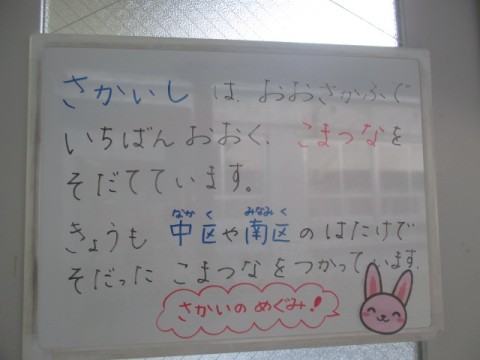 さかいし は、おおさかふで
いちばん おおく、こまつなを
そだてています。
なかく みなみく
きょうも 中区や南区 のはたけで
そだった こまつな をつかって います。
さかいの めぐみ!